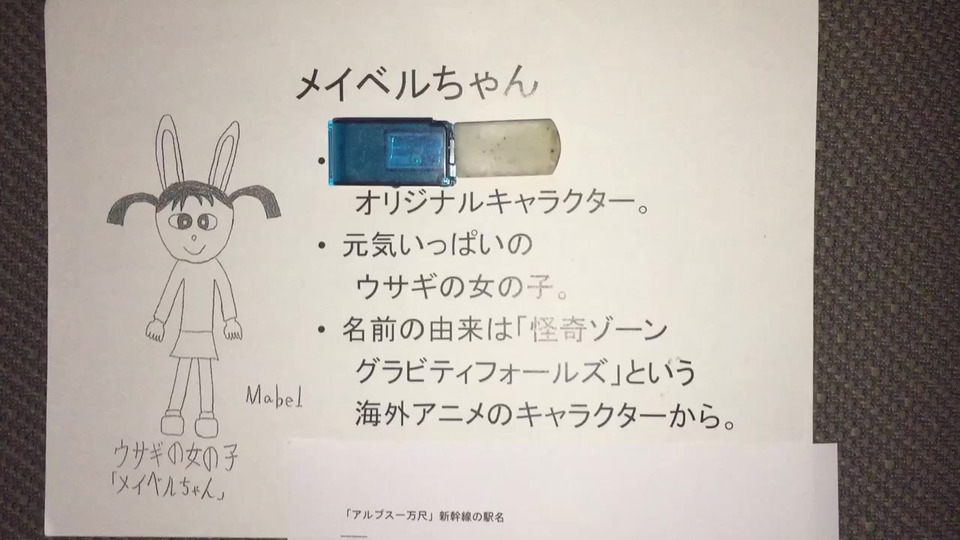 メイベルちゃん
オリジナルキャラクター。
• 元気いっぱいの
ウサギの女の子。
• 名前の由来は「怪奇ゾーン
グラビティフォールズ」という
海外アニメのキャラクターから。
Mabel
ウサギの女の子
「メイベルちゃん」
「アルプス一万尺」新幹線の駅名